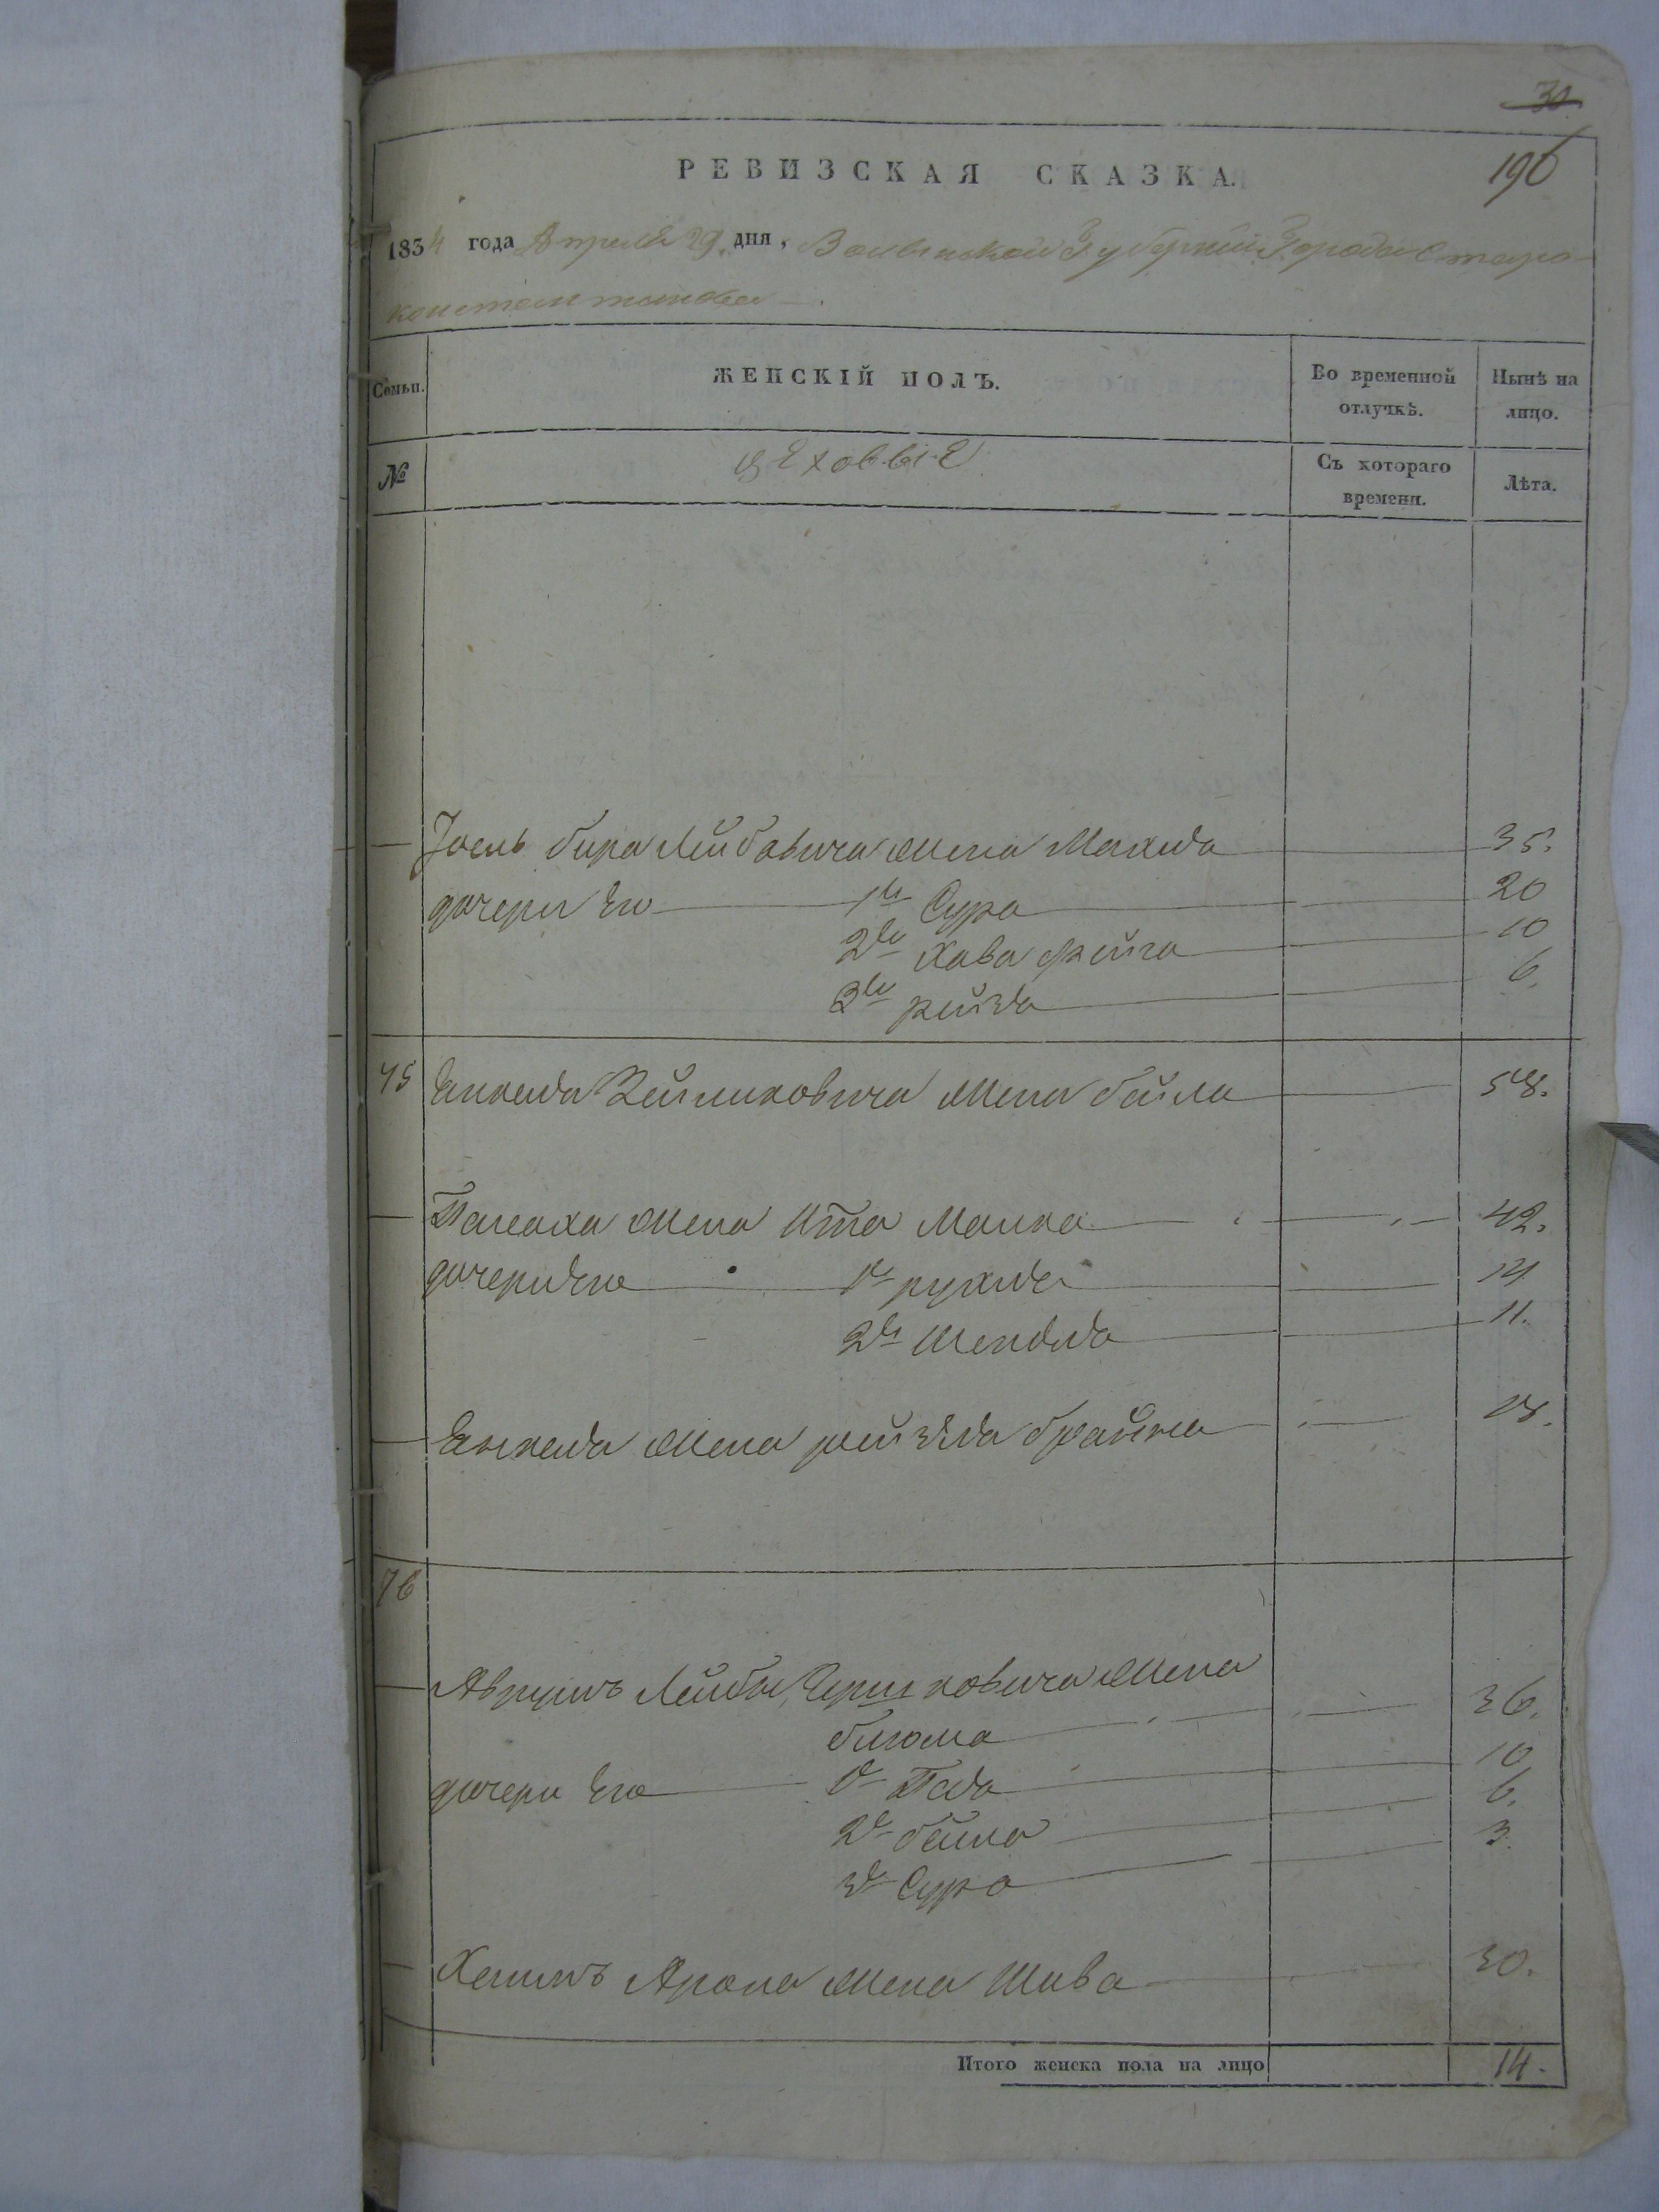 30
РЕВИЗСКАЯ СКАЗКА.
196
1834 года Апреля 29. дня, Волынской Губернии Города Старо-
константинова
Семьи. ЖЕНСКІЙ ПОЛЪ. Во временной отлучкѣ. Нынѣ на лицо.
№ цеховые Съ котораго времени. Лѣта.
Іосль бера Лейбовича жена Махля 35.
дочери Его 1я Сура 20
2я Хава фейга 10
3я рейзя 6.
75 Янкеля Зейликовича жена бейла 58.
Пейсаха жена Ита Малка 42.
дочери Его 1я рухля 14
2я Шендля 11.
Янкеля жена рейзля брайна 18.
76
Аврумъ Лейбы Гершковича жена
блюма 36.
дочери Его 1я Песя 10
2я бейла 6.
3я Сура 3.
Хаимъ Арона жена Шива 30.
Итого женска пола на лицо 14.